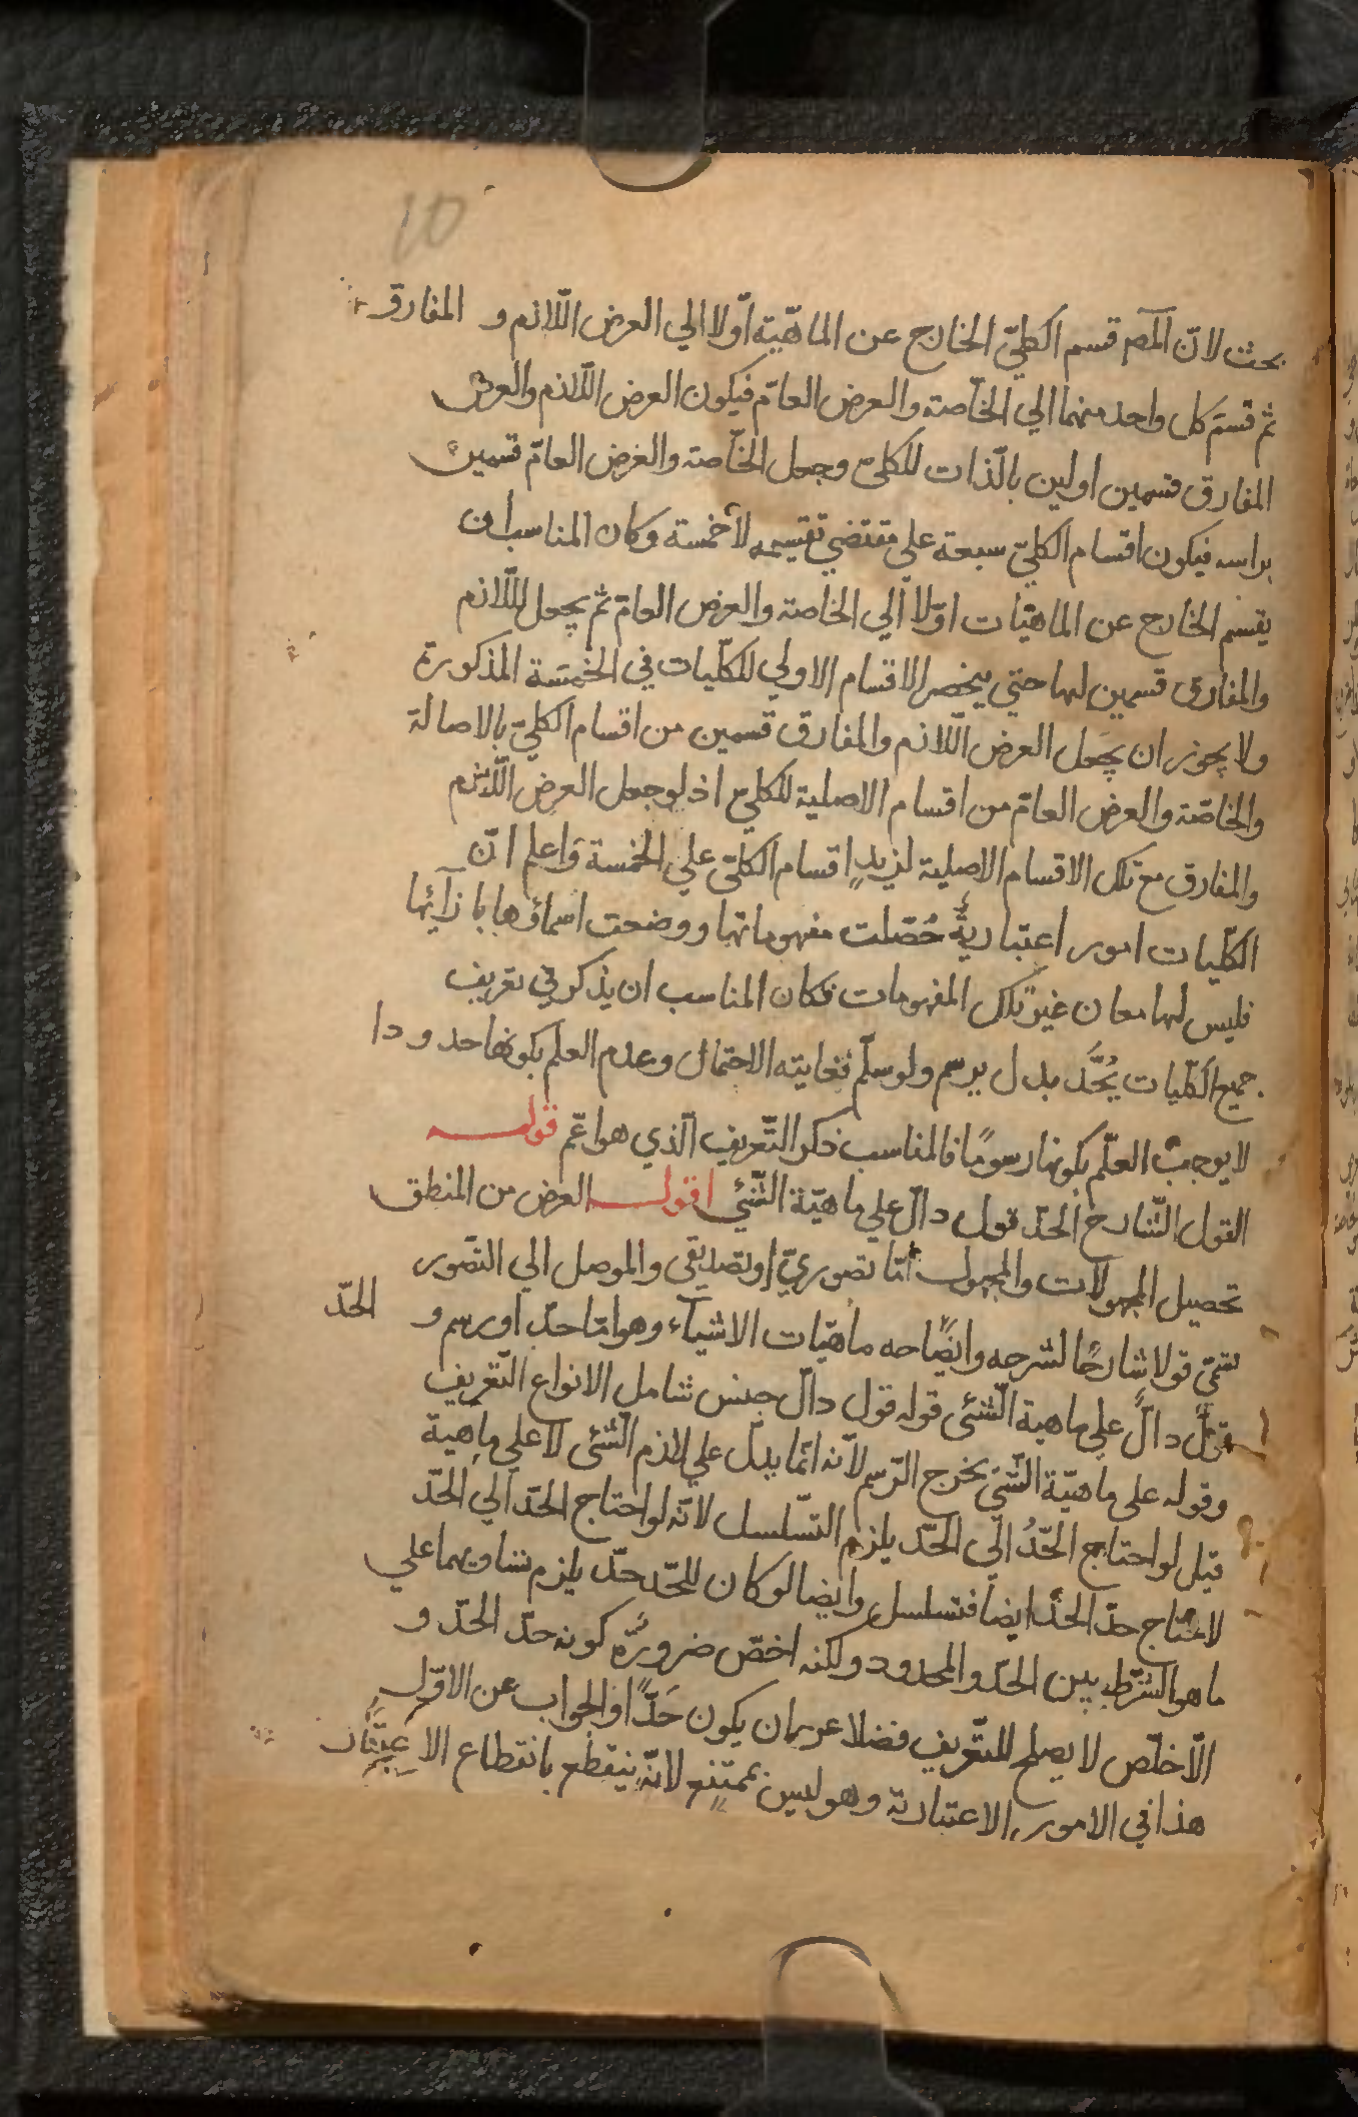 10
بحث لانّ المص قسم الكليّ الخارج عن الماهّية اوّلا الي العرض اللّازم و المفارق
ثم قسم كل واحد منهما الي الخاّصة والعرض العامّ فيكون العرض اللّازم والعرض
المفارق قسمين اولين بالّذات للكليّ وجعل الخاّصة والغرض العامّ قسمين
براسه فيكون اقسام الكليّ سبعة على مقتضي تقسيمه لا خمسة وكان المناسب ان
يقسم الخارج عن الماهيّات اوّلا الي الخاصة والعرض العامّ ثم يجعل اللّازم
والمفارق قسمين لها حتي ينحصر الاقسام الاولي للكلّيات في الخمسَة المذكورة
ولا يجوز ان يجعل العرض اللّازم والمفارق قسمين من اقسام الكليّ بالاصالة
والخاصّة والعرض العامّ من اقسام الاصلية للكليّ اذ لو جعل العرض اللّازم
والمفارق مع تلك الاقسام الاصلية لزيدٍ اقسام الكلّي علي الخمسة وَاعلم انّ
الكلّيات امور اعتباريةٌ حُصّلت مفهوماتها ووضعت اسماؤها بازآئها
فليس لها معان غير تلك المفهومات فكان المناسب ان يذكر في تعريف
جميع الكلّيات يُحَّد بدل يرسم ولو سلّم فغايته الاحتمال وعدم العلم بكونها حدودا
لا يوجب العلّم بكونها رسومًا فالمناسب ذكر التّعريف الّذي هو اعّم قوله
القول الشّارح الحدّ قول دالّ علي ماهيّة الشّئي اقول العرض من المنطق
تحصيل المجهولات والمجهول امّا تصوريّ او تصديقي والموصل الي التصّور
يسمّي قولا شارحًا لشرحه وايضًاحه ماهيّات الاشياء وهو امّا حدّ او رسم و الحدّ
قولٌ دالٌّ علي ماهية الشّئى قوله قول دالّ جنس شامل الانواع التّعريف
وقوله على ماهيّة الشّئ يخرج الرّسم لانّه انّما يدلّ علي لازم الشّئى لا علي ماهية
قيل لو احتاج الحّدُ الي الحّد يلزم التسّلسل لانّه لو احتاج الحدّ الي الحدّ
لاحتاج حدّ الحدّ ايضا فتسلسل وايضا لو كان للحّد حدّ يلزم تساويهما علي
ما هو الشرّط بين الحدّ والمحدود ولكنه اخصّ ضرورةً كونه حدّ الحدّ و
الّاخلّص لا يصلح للتّعريف فضلا عن ان يكون حَدًّا والجواب عن الاوّل
هذا في الامور الاعتبارية وهو ليس بممتنع لانّه ينقطع بانقطاع الاعتبار